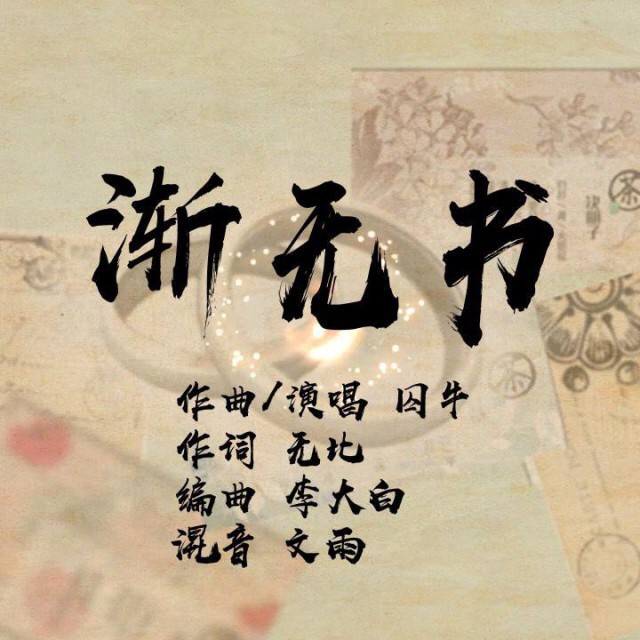 渐无书
作曲/演唱 囚牛
作词 无比
编曲 李大白
混音 文雨
茶
茶